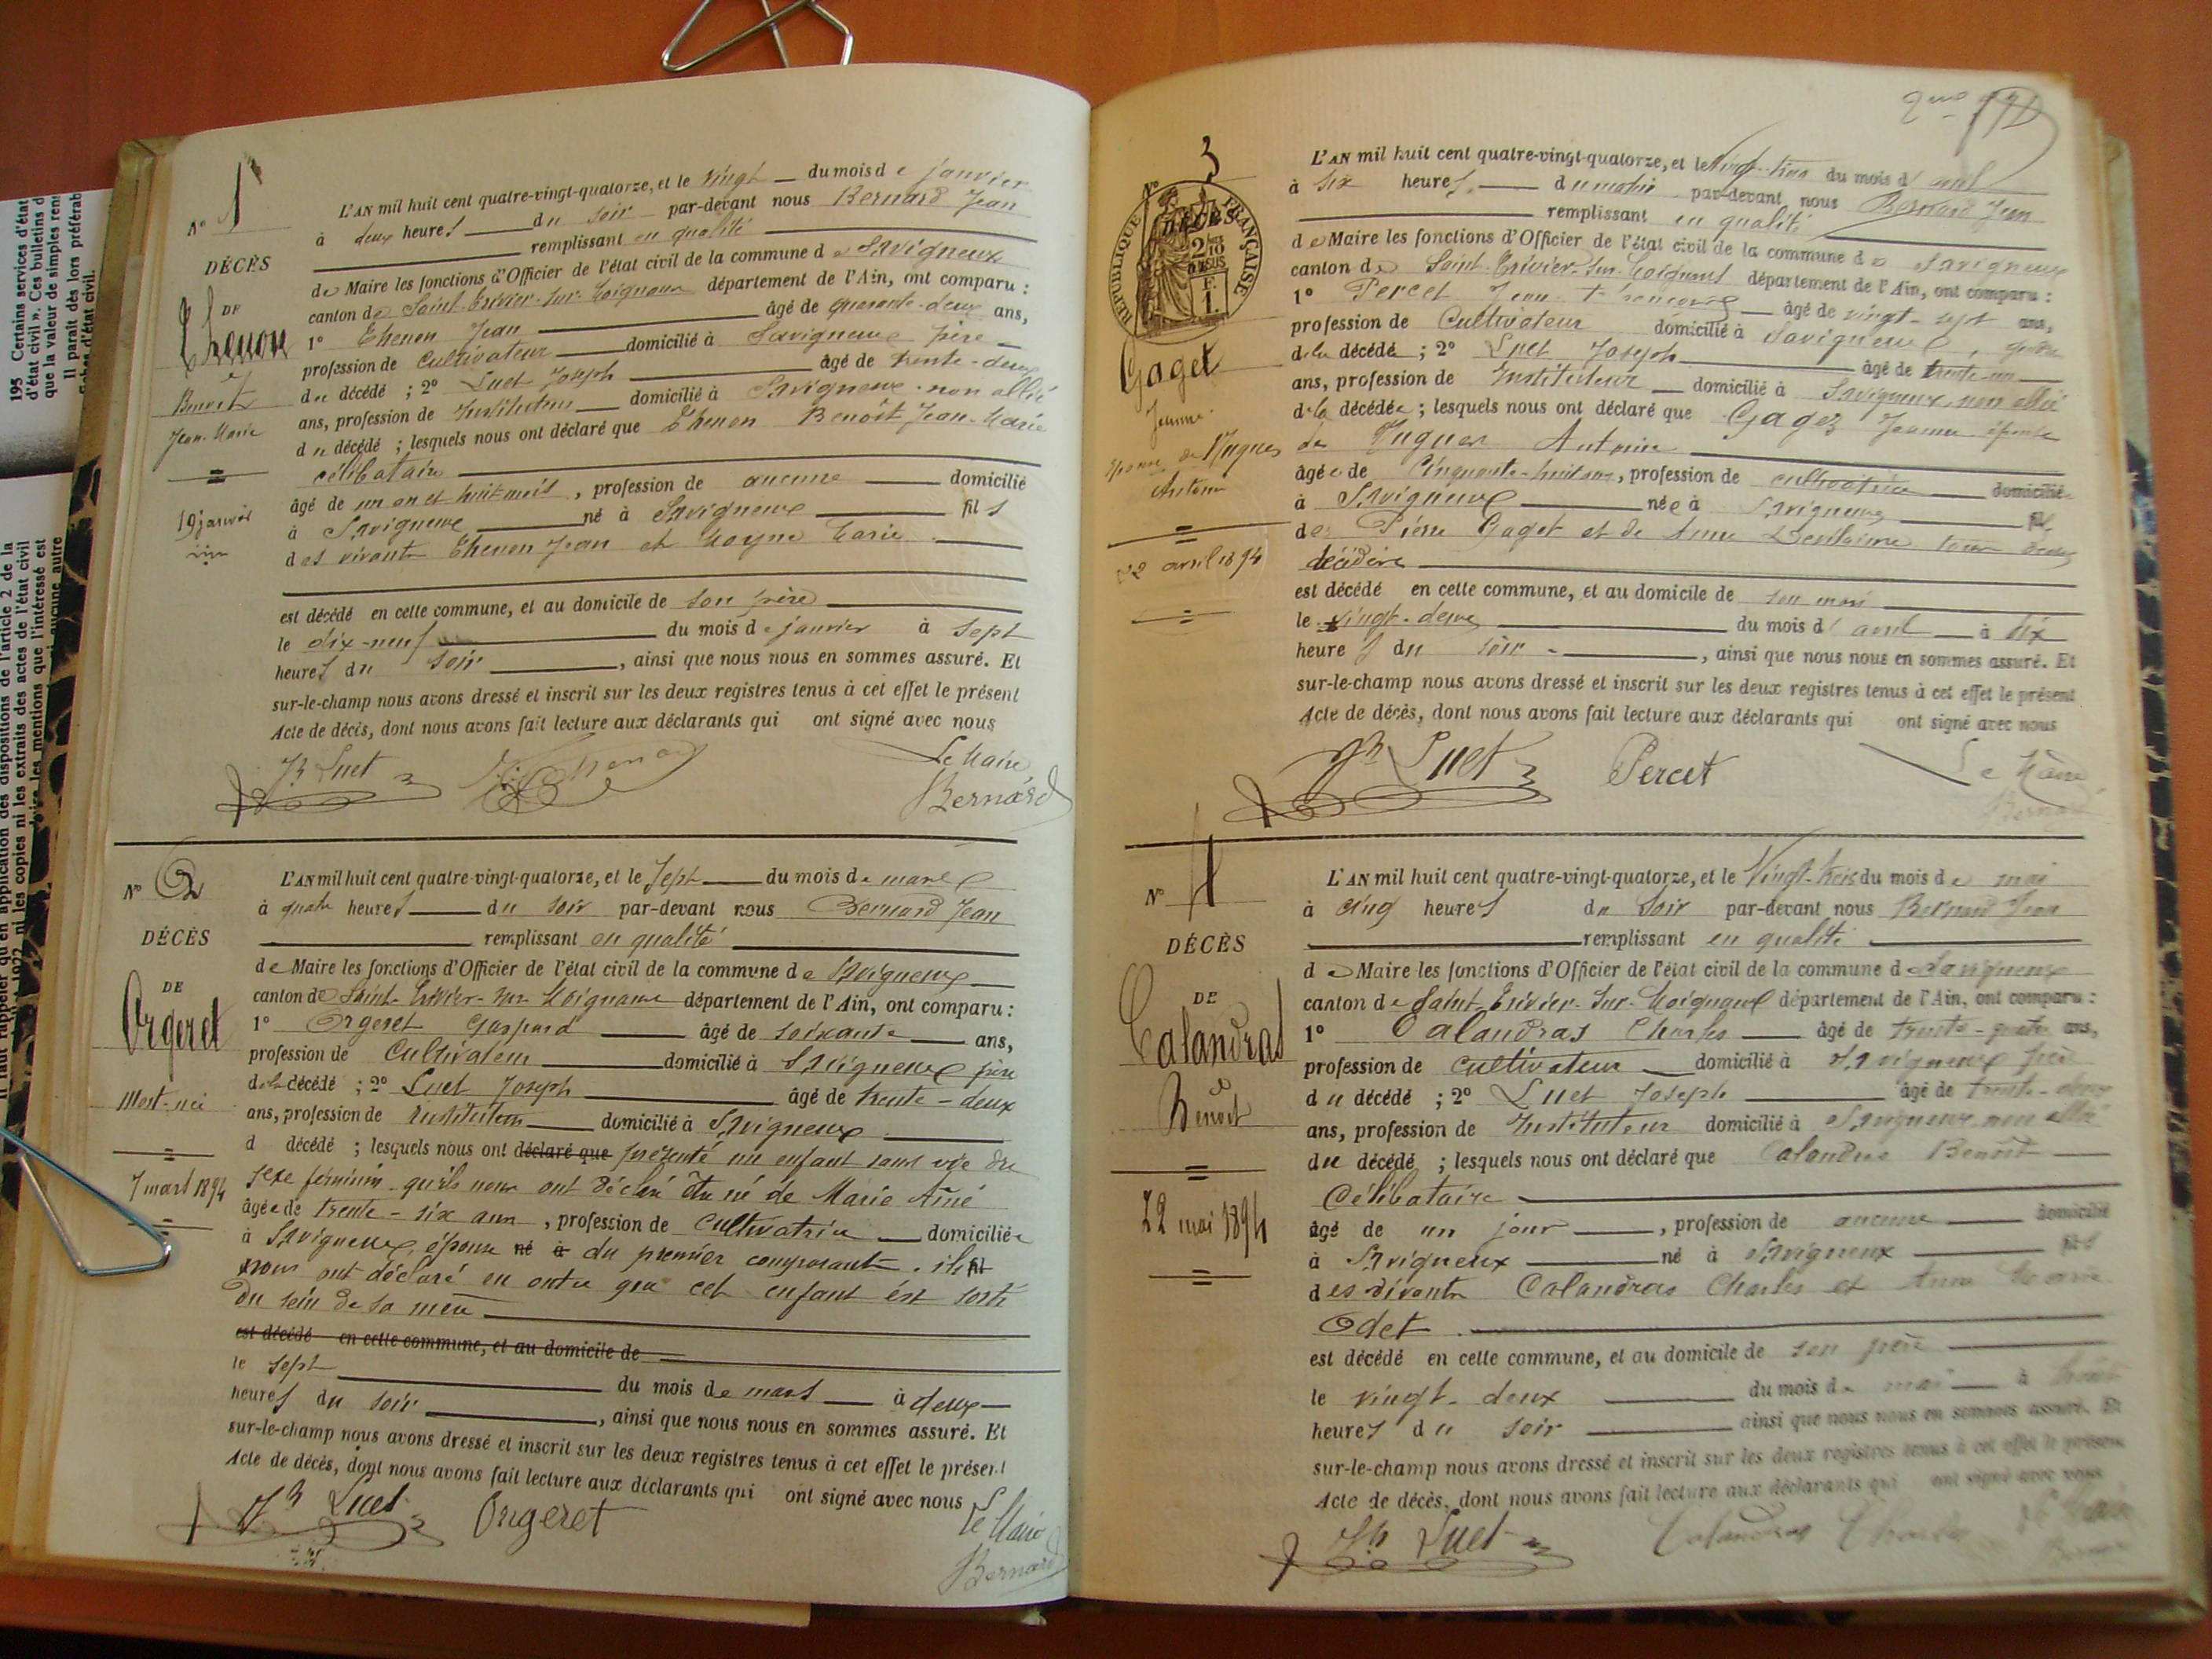 195 Certains services d'état
d'état civil ». Ces bulletins d
que la valeur de simples ren
Il paraît dès lors préférab
d'état civil.
des dispositions de l'article 2 de la
ni les extraits des actes de l'état civil
les mentions que l'intéressé est
aucune autre
Il faut rappeler qu'en application
1922 ni les copies
N° 1
DÉCÈS
DE
Thenon
Benoît
Jean-Marie
19 janvier
L'AN mil huit cent quatre-vingt-quatorze, et le vingt du mois de janvier
à deux heures du soir par-devant nous Bernard Jean
remplissant en qualité
de Maire les fonctions d'Officier de l'état civil de la commune de Savigneux
canton de Saint-Trivier-sur-Moignans département de l'Ain, ont comparu :
1° Thenon Jean âgé de quarante-deux ans,
profession de Cultivateur domicilié à Savigneux père
du décédé ; 2° Luet Joseph âgé de trente-deux
ans, profession de Instituteur domicilié à Savigneux non allié
du décédé ; lesquels nous ont déclaré que Thenon Benoît Jean-Marie
célibataire
âgé de un an et huit mois, profession de aucune domicilié
à Savigneux né à Savigneux fils
des vivants Thenon Jean et Moyne Marie
est décédé en cette commune, et au domicile de son père
le dix-neuf du mois de janvier à sept
heures du soir, ainsi que nous nous en sommes assuré. Et
sur-le-champ nous avons dressé et inscrit sur les deux registres tenus à cet effet le présent
Acte de décès, dont nous avons fait lecture aux déclarants qui ont signé avec nous
Jh Luet Thenon Le Maire
Bernard
N° 2
DÉCÈS
DE
Orgeret
Mort-né
7 mars 1894
L'AN mil huit cent quatre-vingt-quatorze, et le sept du mois de mars
à quatre heures du soir par-devant nous Bernard Jean
remplissant en qualité
de Maire les fonctions d'Officier de l'état civil de la commune de Savigneux
canton de Saint-Trivier-sur-Moignans département de l'Ain, ont comparu :
1° Orgeret Gaspard âgé de soixante ans,
profession de Cultivateur domicilié à Savigneux père
de la décédé ; 2° Luet Joseph âgé de trente-deux
ans, profession de Instituteur domicilié à Savigneux
d décédé ; lesquels nous ont déclaré que présenté un enfant sans vie du
sexe féminin qu'ils nous ont déclaré être né de Marie Aîné
âgée de trente-six ans, profession de Cultivatrice domiciliée
à Savigneux, épouse né à du premier comparant. ils fil
nous ont déclaré en outre que cet enfant est sorti
du sein de sa mère
est décédé en cette commune, et au domicile de
le sept du mois de mars à deux
heures du soir, ainsi que nous nous en sommes assuré. Et
sur-le-champ nous avons dressé et inscrit sur les deux registres tenus à cet effet le présent
Acte de décès, dont nous avons fait lecture aux déclarants qui ont signé avec nous
Jh Luet Orgeret Le Maire
Bernard
N° 3
DÉCÈS
RÉPUBLIQUE FRANÇAISE
2/10 EN SUS
1 F.
Gaget
Jeanne
épouse de Hugues
Antoine
22 avril 1894
L'AN mil huit cent quatre-vingt-quatorze, et le vingt-trois du mois d'avril
à six heures du matin par-devant nous Bernard Jean
remplissant en qualité
de Maire les fonctions d'Officier de l'état civil de la commune de Savigneux
canton de Saint-Trivier-sur-Moignans département de l'Ain, ont comparu :
1° Percet Jean François âgé de vingt-sept ans,
profession de Cultivateur domicilié à Savigneux, gendre
de la décédé ; 2° Luet Joseph âgé de trente-un
ans, profession de Instituteur domicilié à Savigneux non allié
de la décédée ; lesquels nous ont déclaré que Gaget Jeanne épouse
de Hugues Antoine
âgée de Cinquante-huit ans, profession de cultivatrice domiciliée
à Savigneux née à Savigneux fil
de Pierre Gaget et de Anne tous deux
décédés
est décédé en cette commune, et au domicile de son mari
le vingt-deux du mois d'avril à six
heures du soir, ainsi que nous nous en sommes assuré. Et
sur-le-champ nous avons dressé et inscrit sur les deux registres tenus à cet effet le présent
Acte de décès, dont nous avons fait lecture aux déclarants qui ont signé avec nous
Jh Luet Percet Le Maire
Bernard
N° 4
DÉCÈS
DE
Calandras
Benoît
22 mai 1894
L'AN mil huit cent quatre-vingt-quatorze, et le vingt-trois du mois de mai
à cinq heures du soir par-devant nous Bernard Jean
remplissant en qualité
de Maire les fonctions d'Officier de l'état civil de la commune de Savigneux
canton de Saint-Trivier-sur-Moignans département de l'Ain, ont comparu :
1° Calandras Charles âgé de trente-quatre ans,
profession de Cultivateur domicilié à Savigneux père
du décédé ; 2° Luet Joseph âgé de trente-deux
ans, profession de Instituteur domicilié à Savigneux non allié
du décédé ; lesquels nous ont déclaré que Calandras Benoît
Célibataire
âgé de un jour, profession de aucune domicilié
à Savigneux né à Savigneux fils
des vivants Calandras Charles et Anne Marie
Odet
est décédé en cette commune, et au domicile de son père
le vingt-deux du mois de mai à huit
heures du soir ainsi que nous nous en sommes assuré. Et
sur-le-champ nous avons dressé et inscrit sur les deux registres tenus à cet effet le présent
Acte de décès, dont nous avons fait lecture aux déclarants qui ont signé avec nous
Jh Luet Calandras Charles Le Maire
Bernard